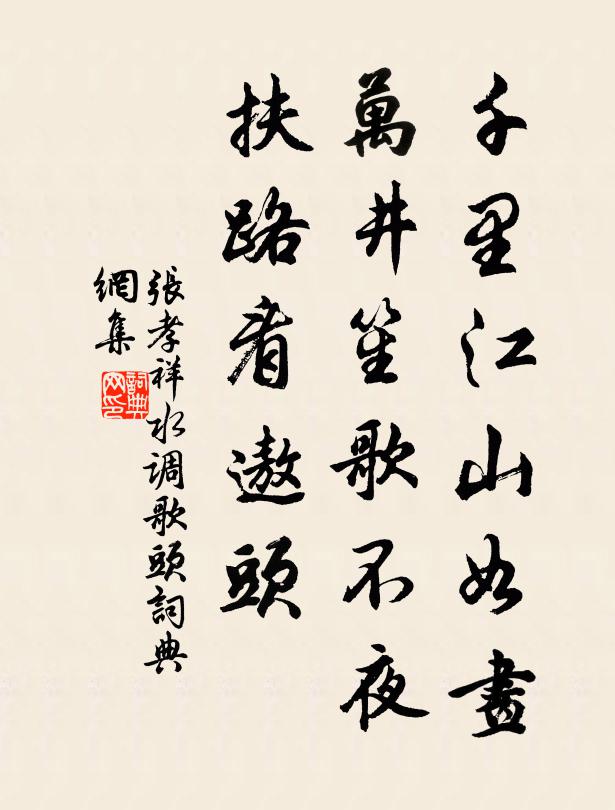 千里江山如畫
萬井笙歌不夜
扶路看遨頭
張孝祥水调歌頭詞典
網集
詞典
网印